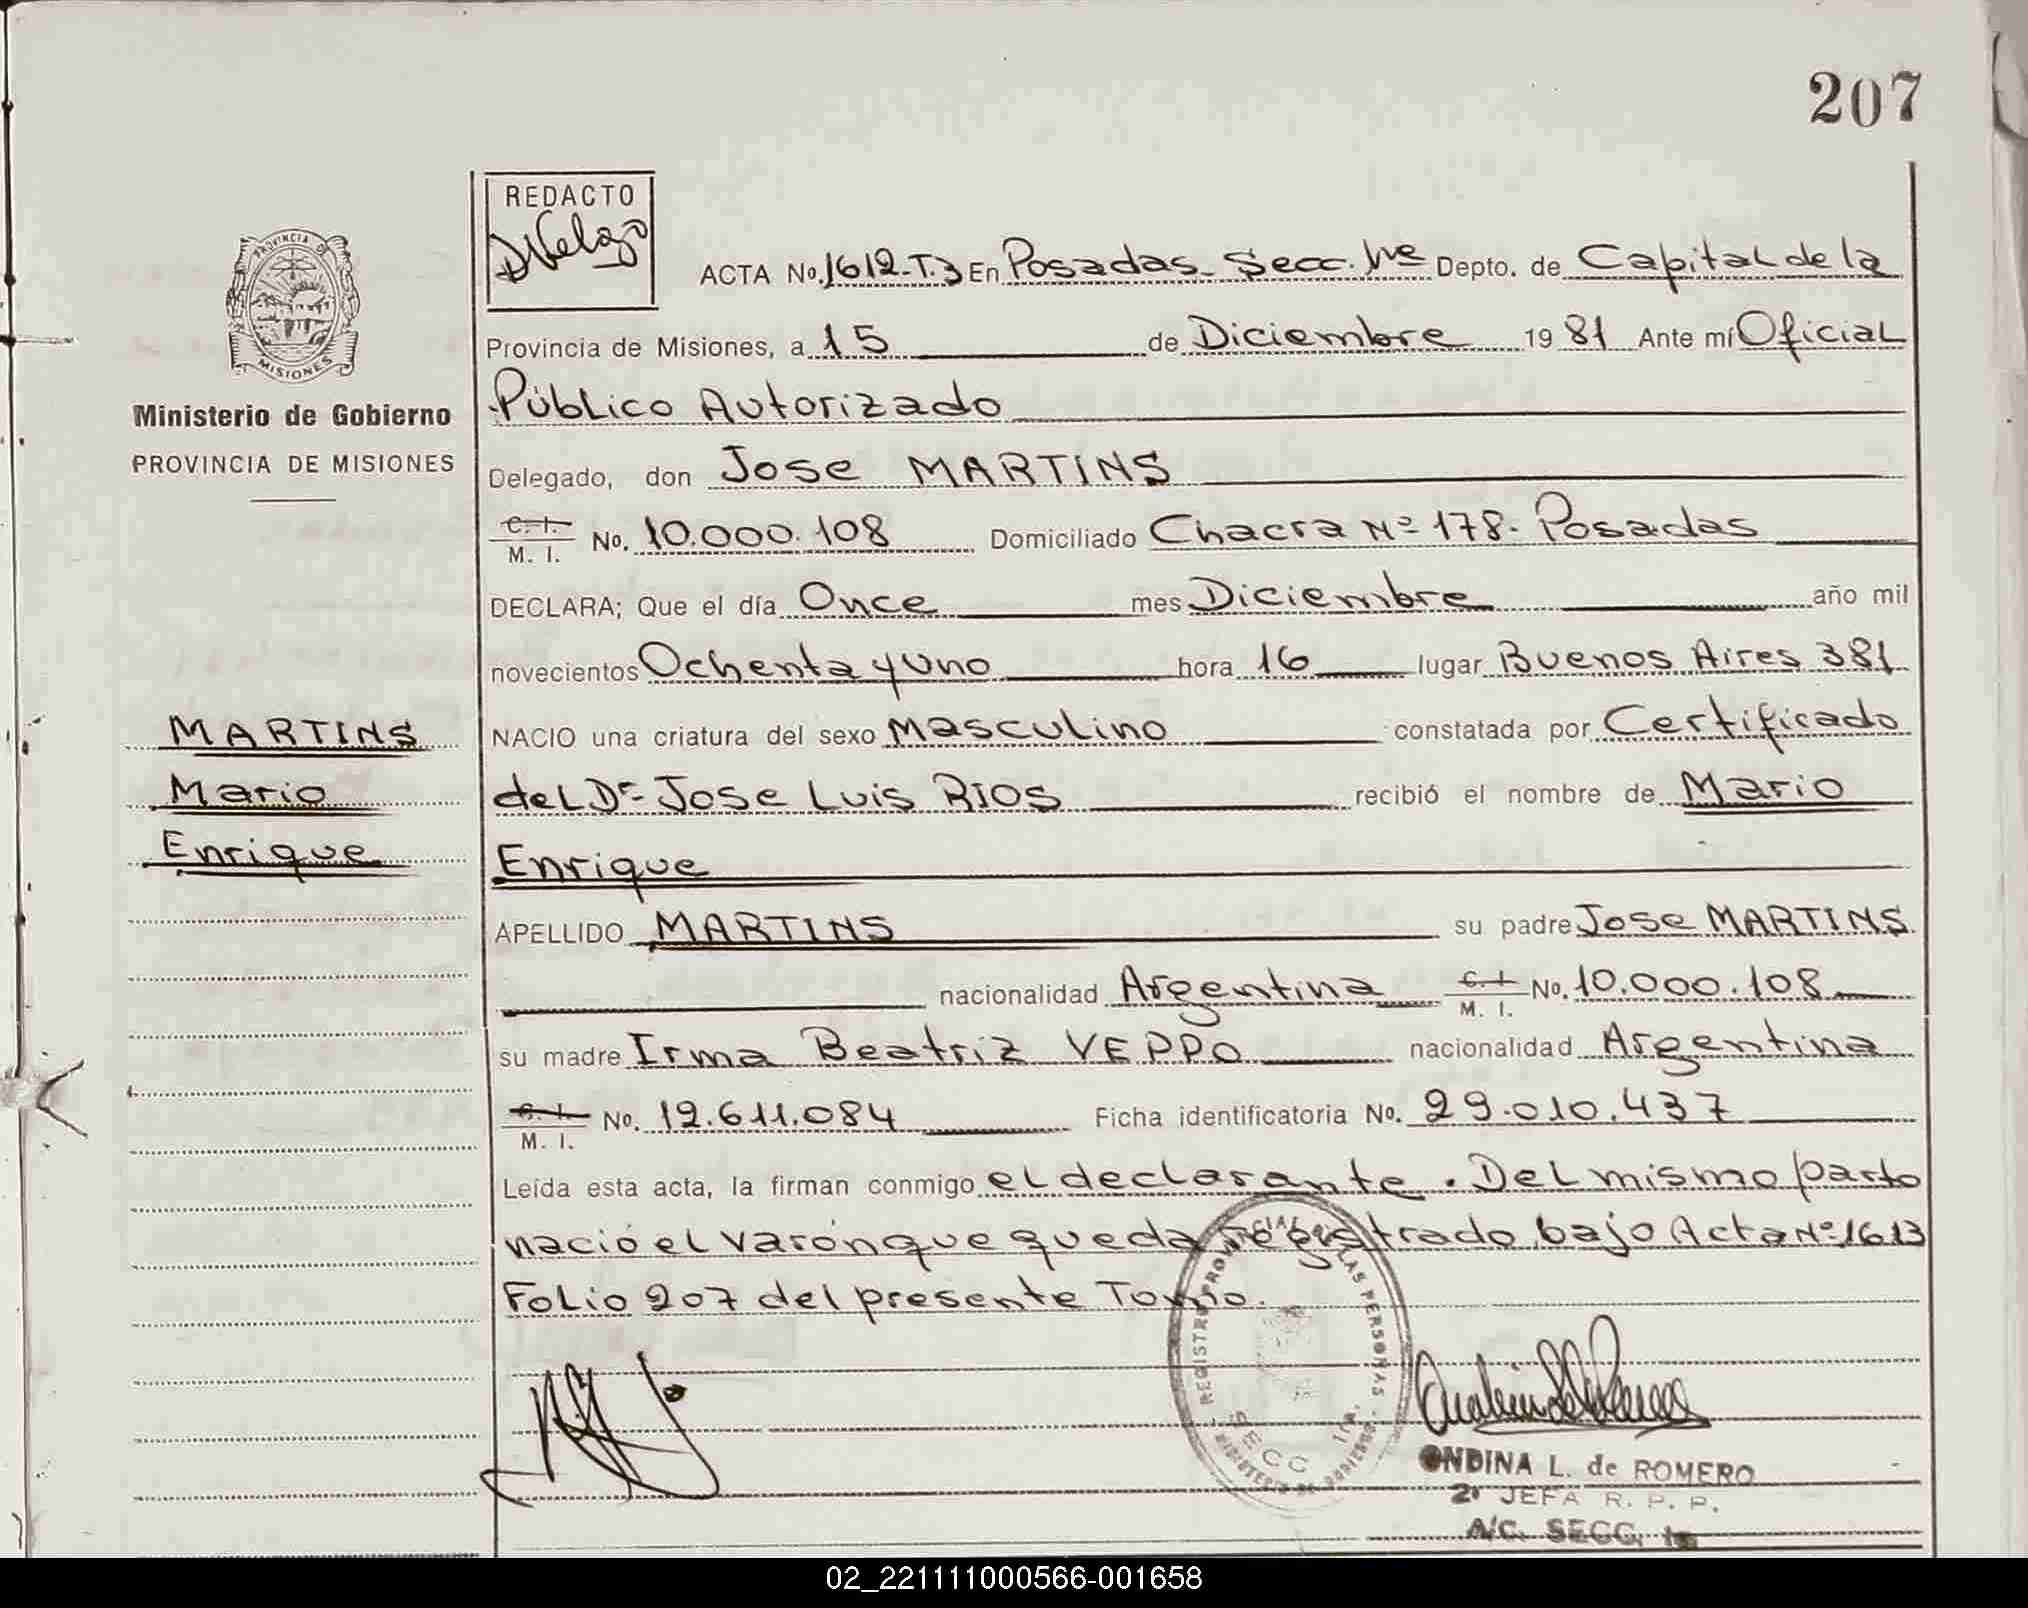 207
REDACTO
ACTA No. 1612-T.3 En Posadas- Secc. 1ra Depto. de Capital de la
PROVINCIA DE
MISIONES
Provincia de Misiones, a 15 de Diciembre 1981 Ante mí Oficial
Ministerio de Gobierno
PROVINCIA DE MISIONES
Público Autorizado
Delegado, don Jose MARTINS
C. I.
M. I. No. 10.000.108 Domiciliado Chacra Nº 178- Posadas
DECLARA; Que el día Once mes Diciembre año mil
novecientos Ochenta y Uno hora 16 lugar Buenos Aires 381
MARTINS
Mario
Enrique
NACIO una criatura del sexo Masculino constatada por Certificado
del Dr- Jose Luis RIOS recibió el nombre de Mario
Enrique
APELLIDO MARTINS su padre Jose MARTINS
nacionalidad Argentina C. I.
M. I. No. 10.000.108
su madre Irma Beatriz VEPPO nacionalidad Argentina
C. I.
M. I. No. 12.611.084 Ficha identificatoria No. 29.010.437
Leída esta acta, la firman conmigo el declarante. Del mismo parto
nació el varón que queda registrado bajo Acta Nº 1613
Folio 207 del presente Tomo.
REGISTRO PROVINCIAL DE LAS PERSONAS
SECC 1ra.
ONDINA L. de ROMERO
2º JEFA R. P. P.
A/C. SECC. 1a
02_221111000566-001658